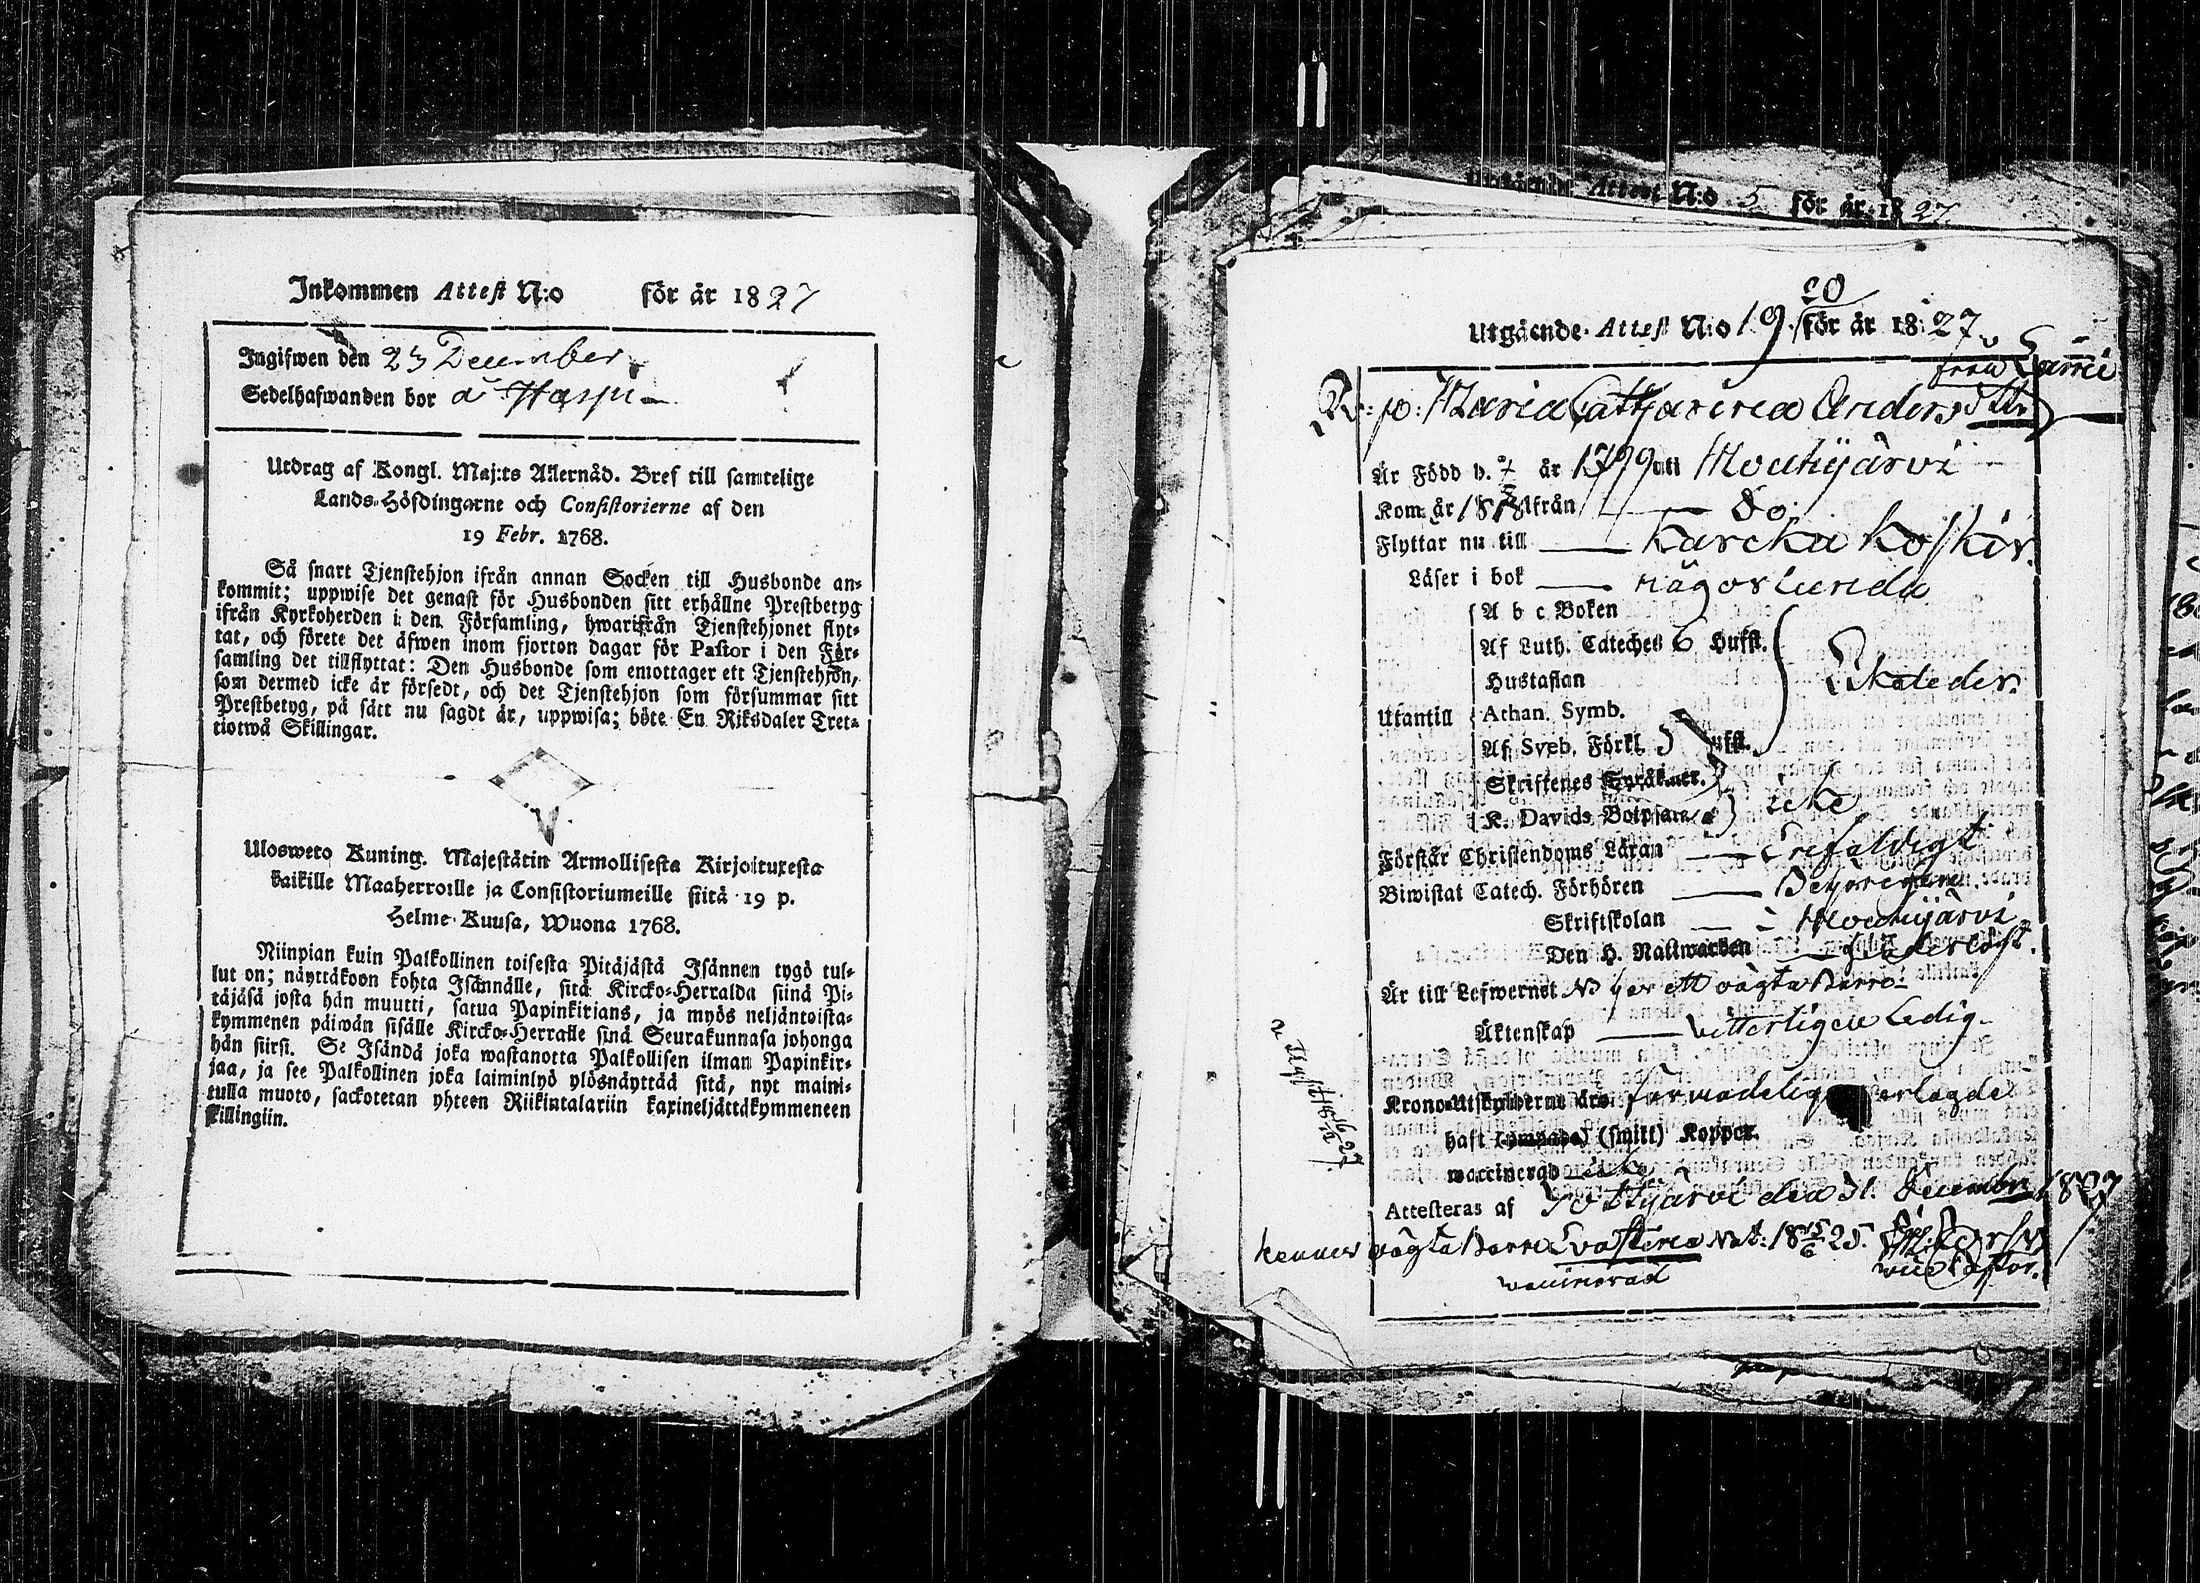 Inkommen Attest N:o för år 1827
Ingifwen den 23 December
Sedelhafwanden bor å Harju
Utdrag af Kongl. Maj:ts Allernåd. Bref till samtelige
Lands-Höfdingarne och Consistorierne af den
19 Febr. 1768.
Så snart Tjenstehjon ifrån annan Socken till Husbonde an-
kommit; uppwise det genast för Husbonden sitt erhållne Prestbetyg
ifrån Kyrkoherden i den Församling, hwarifrån Tjenstehjonet flyt-
tat, och förete det äfwen inom fjorton dagar för Pastor i den För-
samling det tillflyttat: Den Husbonde som emottager ett Tjenstehjon,
som dermed icke är försedt, och det Tjenstehjon som försummar sitt
Prestbetyg, på sätt nu sagdt är, uppwisa; böte En Riksdaler Tret-
tiotwå Skillingar.
Uloswero Kuning. Majestätin Armollisesta Kirjoituxesta
kaikille Maaherroille ja Consistoriumeille siitä 19 p.
Helme-Kuusa, Wuona 1768.
Niinpian kuin Palkollinen toisesta Pitäjästä Isännen tygö tul-
lut on; näyttäkoon kohta Isännälle, sitä Kircko-Herralda siinä Pi-
täjäsä josta hän muutti, saatua Papinkirjans, ja myös neljäntoista-
kymmenen päiwän sisälle Kircko-Herralle sinä Seurakunnasa johonga
hän siirsi. Se Isändä joka wastanotta Palkollisen ilman Papinkir-
jaa, ja see Palkollinen joka laiminlyö ylösnäyttää sitä, nyt maini-
tulla muoto, sackotetan yhteen Riikintalariin kaxineljättäkymmeneen
skillingiin.
Utgående Attest N:o 5 för år 1827
20
Utgående Attest N:o 19. för år 1827.
från
P: p: Maria Catharina Andersdttr
Är Född d. år 1799 uti Mouhijärvi
Kom år 1818 ifrån — Do
Flyttar nu till — Karcku Koskis
Läser i bok — någorlunda
A b c Boken
Af Luth. Cateches 6 Hufst.
Hustaflan
Utantill Athan. Symb.
Af Sveb. Förkl. 5 Hufst.
Skriftenes Språkmer.
K. Davids Botpsalm icke
Förstår Christendoms Läran — Enfaldigt
Biwistat Catech. Förhören —
Skriftskolan — i Mouhijärvi
Den H. Nattwarden —
Är till Lefwernet oägta Barn
Äktenskap — Vetterligen Ledig
Krono-Utskylderne äro förmodeligen erlagde
haft (smitt) Koppor.
waccinerad
Attesteras af den 31. December 1827
oägta Barn Eva Stina Nat: 18 15/6 25.
waccinerad vice Pastor.